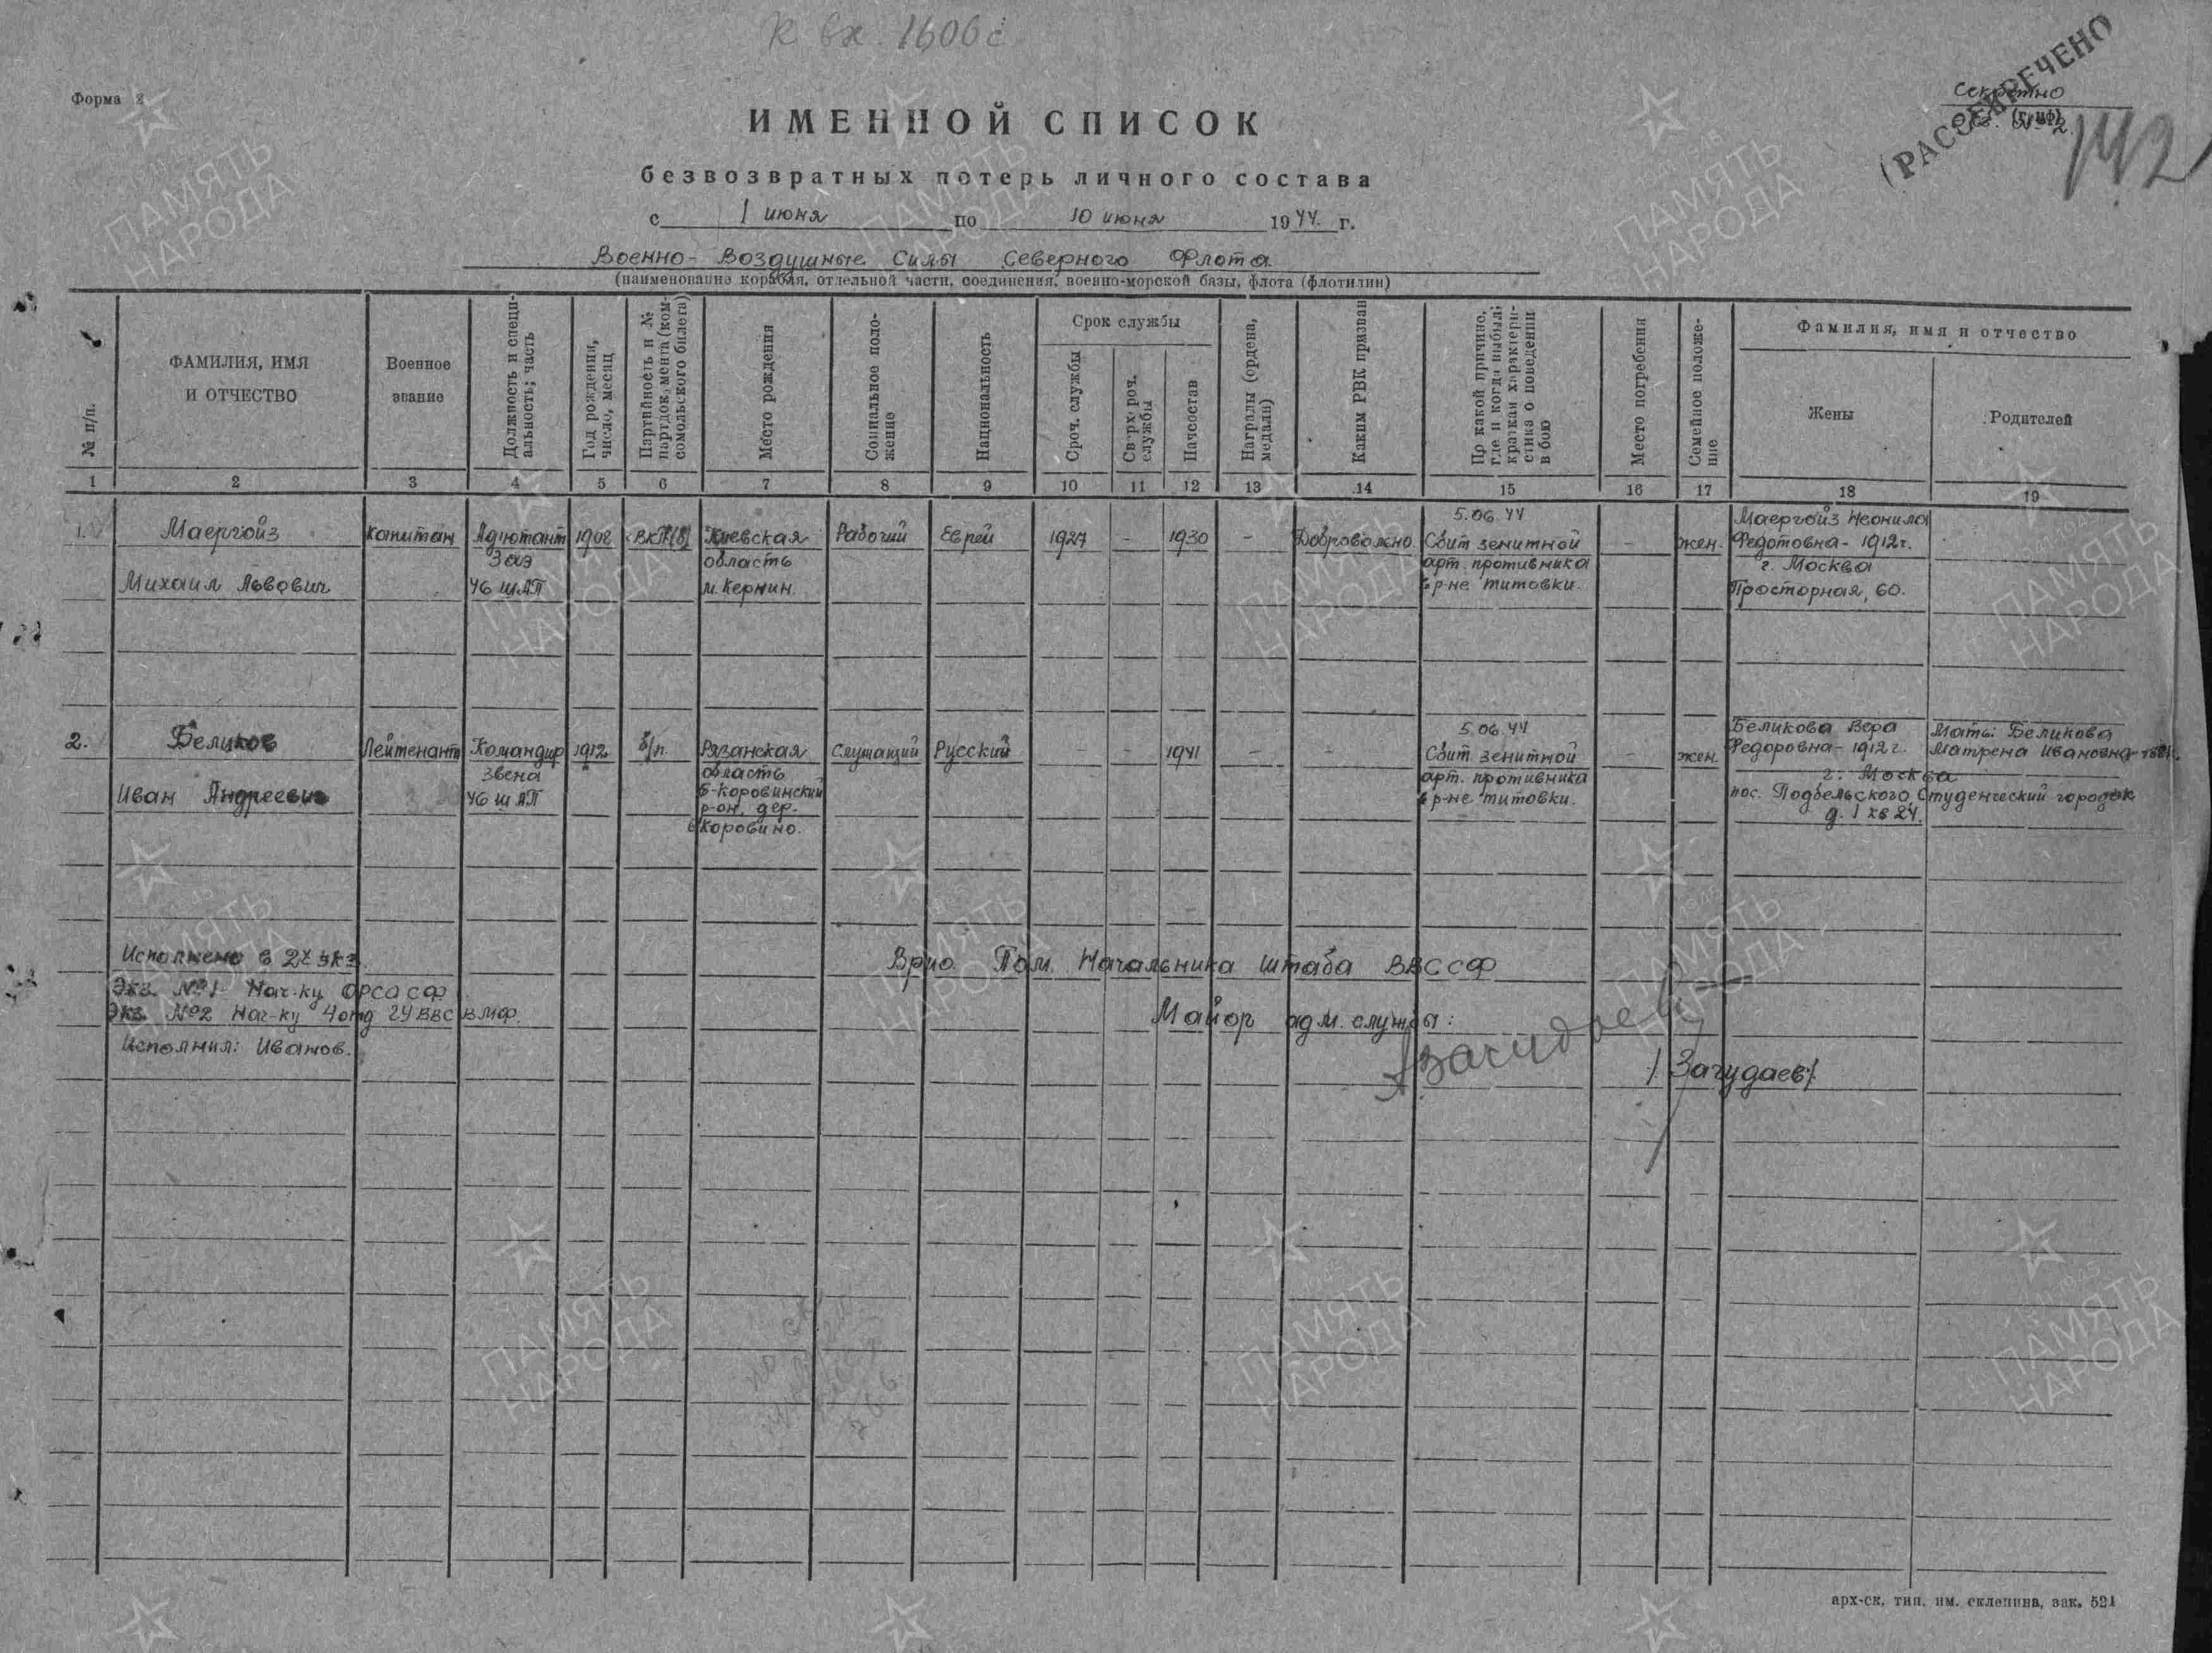 К вх. 1606с
Форма 2
Секретно
(гриф)
РАССЕКРЕЧЕНО
142
ИМЕННОЙ СПИСОК
безвозвратных потерь личного состава
с 1 июня по 10 июня 1944 г.
Военно-Воздушные Силы Северного Флота
(наименование корабля, отдельной части, соединения, военно-морской базы, флота (флотилии)
№ п/п.
ФАМИЛИЯ, ИМЯ
И ОТЧЕСТВО
Военное
звание
Должность и специ-
альность; часть
Год рождения,
число, месяц
Партийность и №
партдокумента (ком-
сомольского билета)
Место рождения
Социальное поло-
жение
Национальность
Срок службы
Сроч. службы
Сверхсроч.
службы
Начсостав
Награды (ордена,
медали)
Каким РВК призван
По какой причине,
где и когда выбыл;
краткая характери-
стика о поведении
в бою
Место погребения
Семейное положе-
ние
Фамилия, имя и отчество
Жены
Родителей
1 2 3 4 5 6 7 8 9 10 11 12 13 14 15 16 17 18 19
1. Маергойз
Михаил Львович
капитан
Адъютант
Заэ
46 ШАП
1908
ВКП(б)
Киевская
область
Рабочий
Еврей
1927
-
1930
-
Добровольно.
5.06.44
Сбит зенитной
арт. противника
в р-не титовки.
-
жен.
Маергойз Неонила
Федотовна - 1912г.
г. Москва
Просторная, 60.
2. Беликов
Иван Андреевич
Лейтенант
Командир
звена
46 ШАП
1912
б/п.
Рязанская
область
Б-коровинский
р-он, дер.
Б/коровино.
Служащий
Русский
-
-
1941
-
-
5.06.44
Сбит зенитной
арт. противника
в р-не титовки.
-
жен.
Беликова Вера
Федоровна - 1912г.
Мать: Беликова
Матрена Ивановна
г. Москва
пос. Подбельского, Студенческий городок
д. 1 кв 24.
Исполнено в 2х экз.
Экз. №1- Нач-ку ОРСА СФ
Экз. №2 Нач-ку 4 отд ГУ ВВС ВМФ.
Исполнил: Иванов.
Врио Пом. Начальника штаба ВВС СФ
Майор адм. службы:
/Загудаев/.
арх-ск. тип. им. склепина, зак. 521
ПАМЯТЬ
НАРОДА